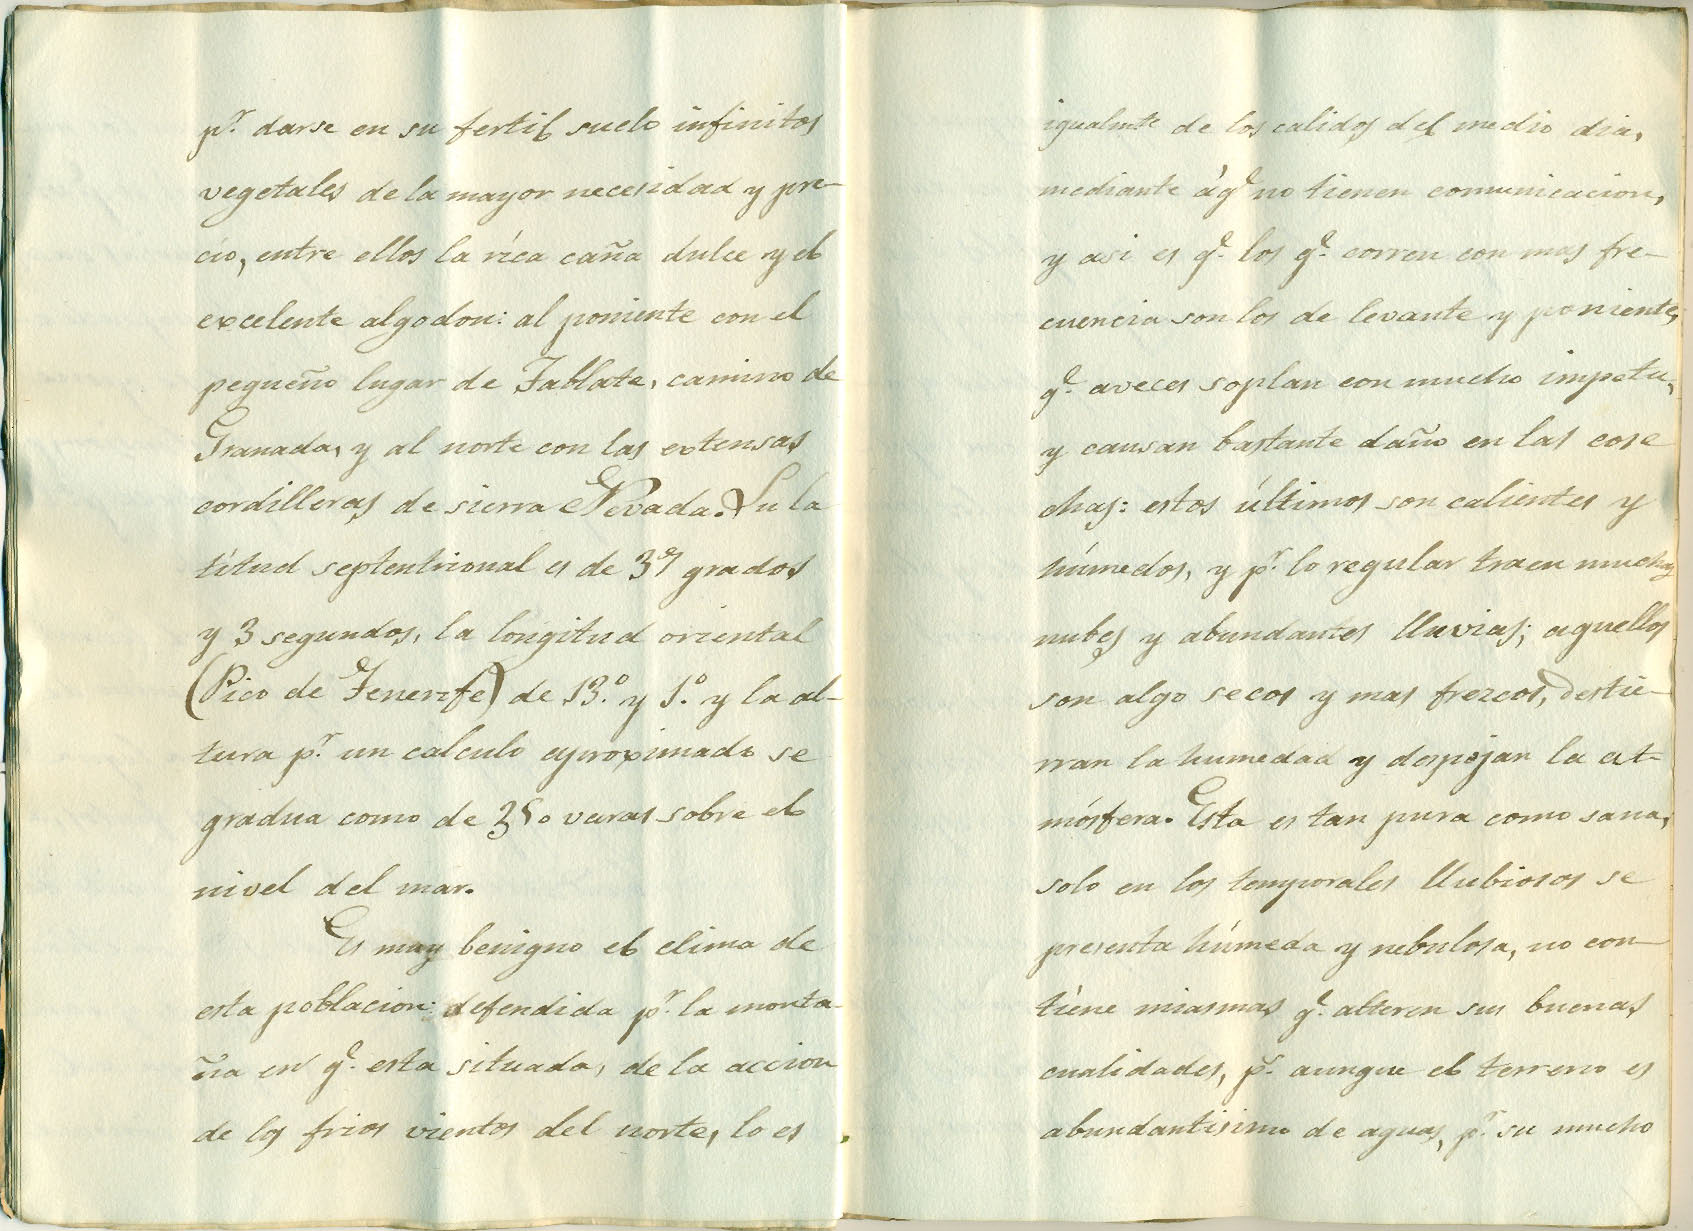 pr. darse en su fertil suelo infinitos
vegetales de la mayor necesidad y pre-
cio, entre ellos la rica caña dulce y el
excelente algodon: al poniente con el
pequeño lugar de Tablate, camino de
Granada, y al norte con las extensas
cordilleras de sierra Nevada. Su la
titud septentrional es de grados
y 3 segundos, la longitud oriental
(Pico de Tenerife) de 13.º y 1.º y la al-
tura pr. un calculo aproximado se
gradua como de varas sobre el
nivel del mar.
Es muy benigno el clima de
esta poblacion: defendida pr. la monta-
ña en qe. esta situada, de la accion
de los frios vientos del norte, lo es
igualmte de los calidos del medio dia,
mediante á qe no tienen comunicacion,
y asi es qe. los qe. corren con mas fre-
cuencia son los de levante y poniente,
qe. aveces soplan con mucho impetu,
y causan bastante daño en las cose
chas: estos últimos son calientes y
húmedos, y pr. lo regular traen muchas
nubes y abundantes lluvias; aquellos
son algo secos y mas frezcos, destie-
rran la humedad y despojan la at-
mósfera. Esta es tan pura como sana,
solo en los temporales llubiosos se
presenta húmeda y nebulosa, no con-
tiene miasmas qe. alteren sus buenas
cualidades, ps. aunque el terreno es
abundantisimo de aguas, pr. su mucho